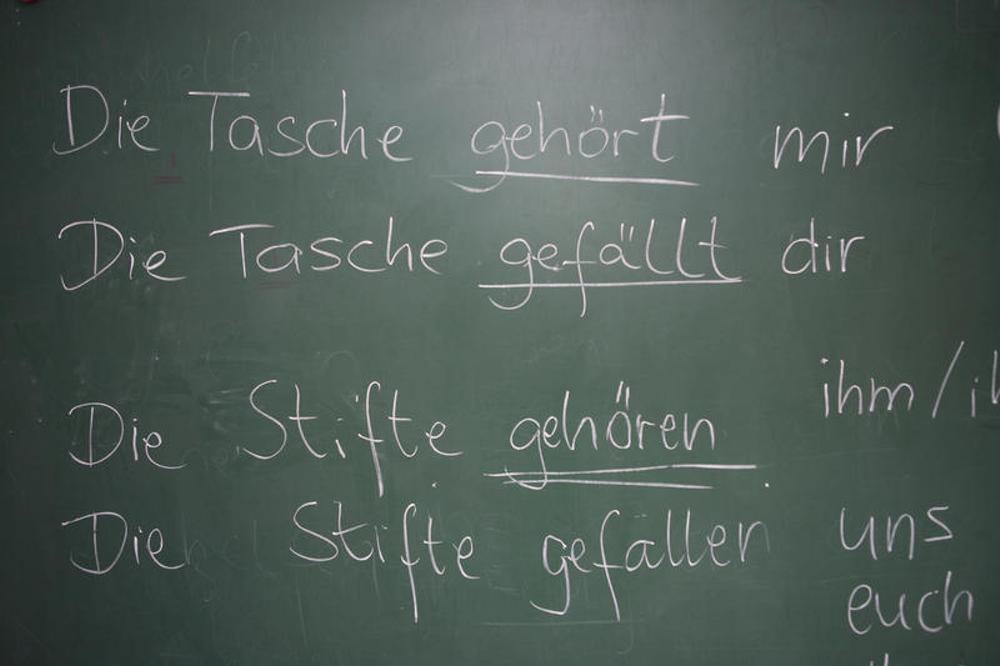 Die Tasche gehört mir
Die Tasche gefällt dir
ihm /
Die Stifte gehören
Die Stifte gefallen uns
euch